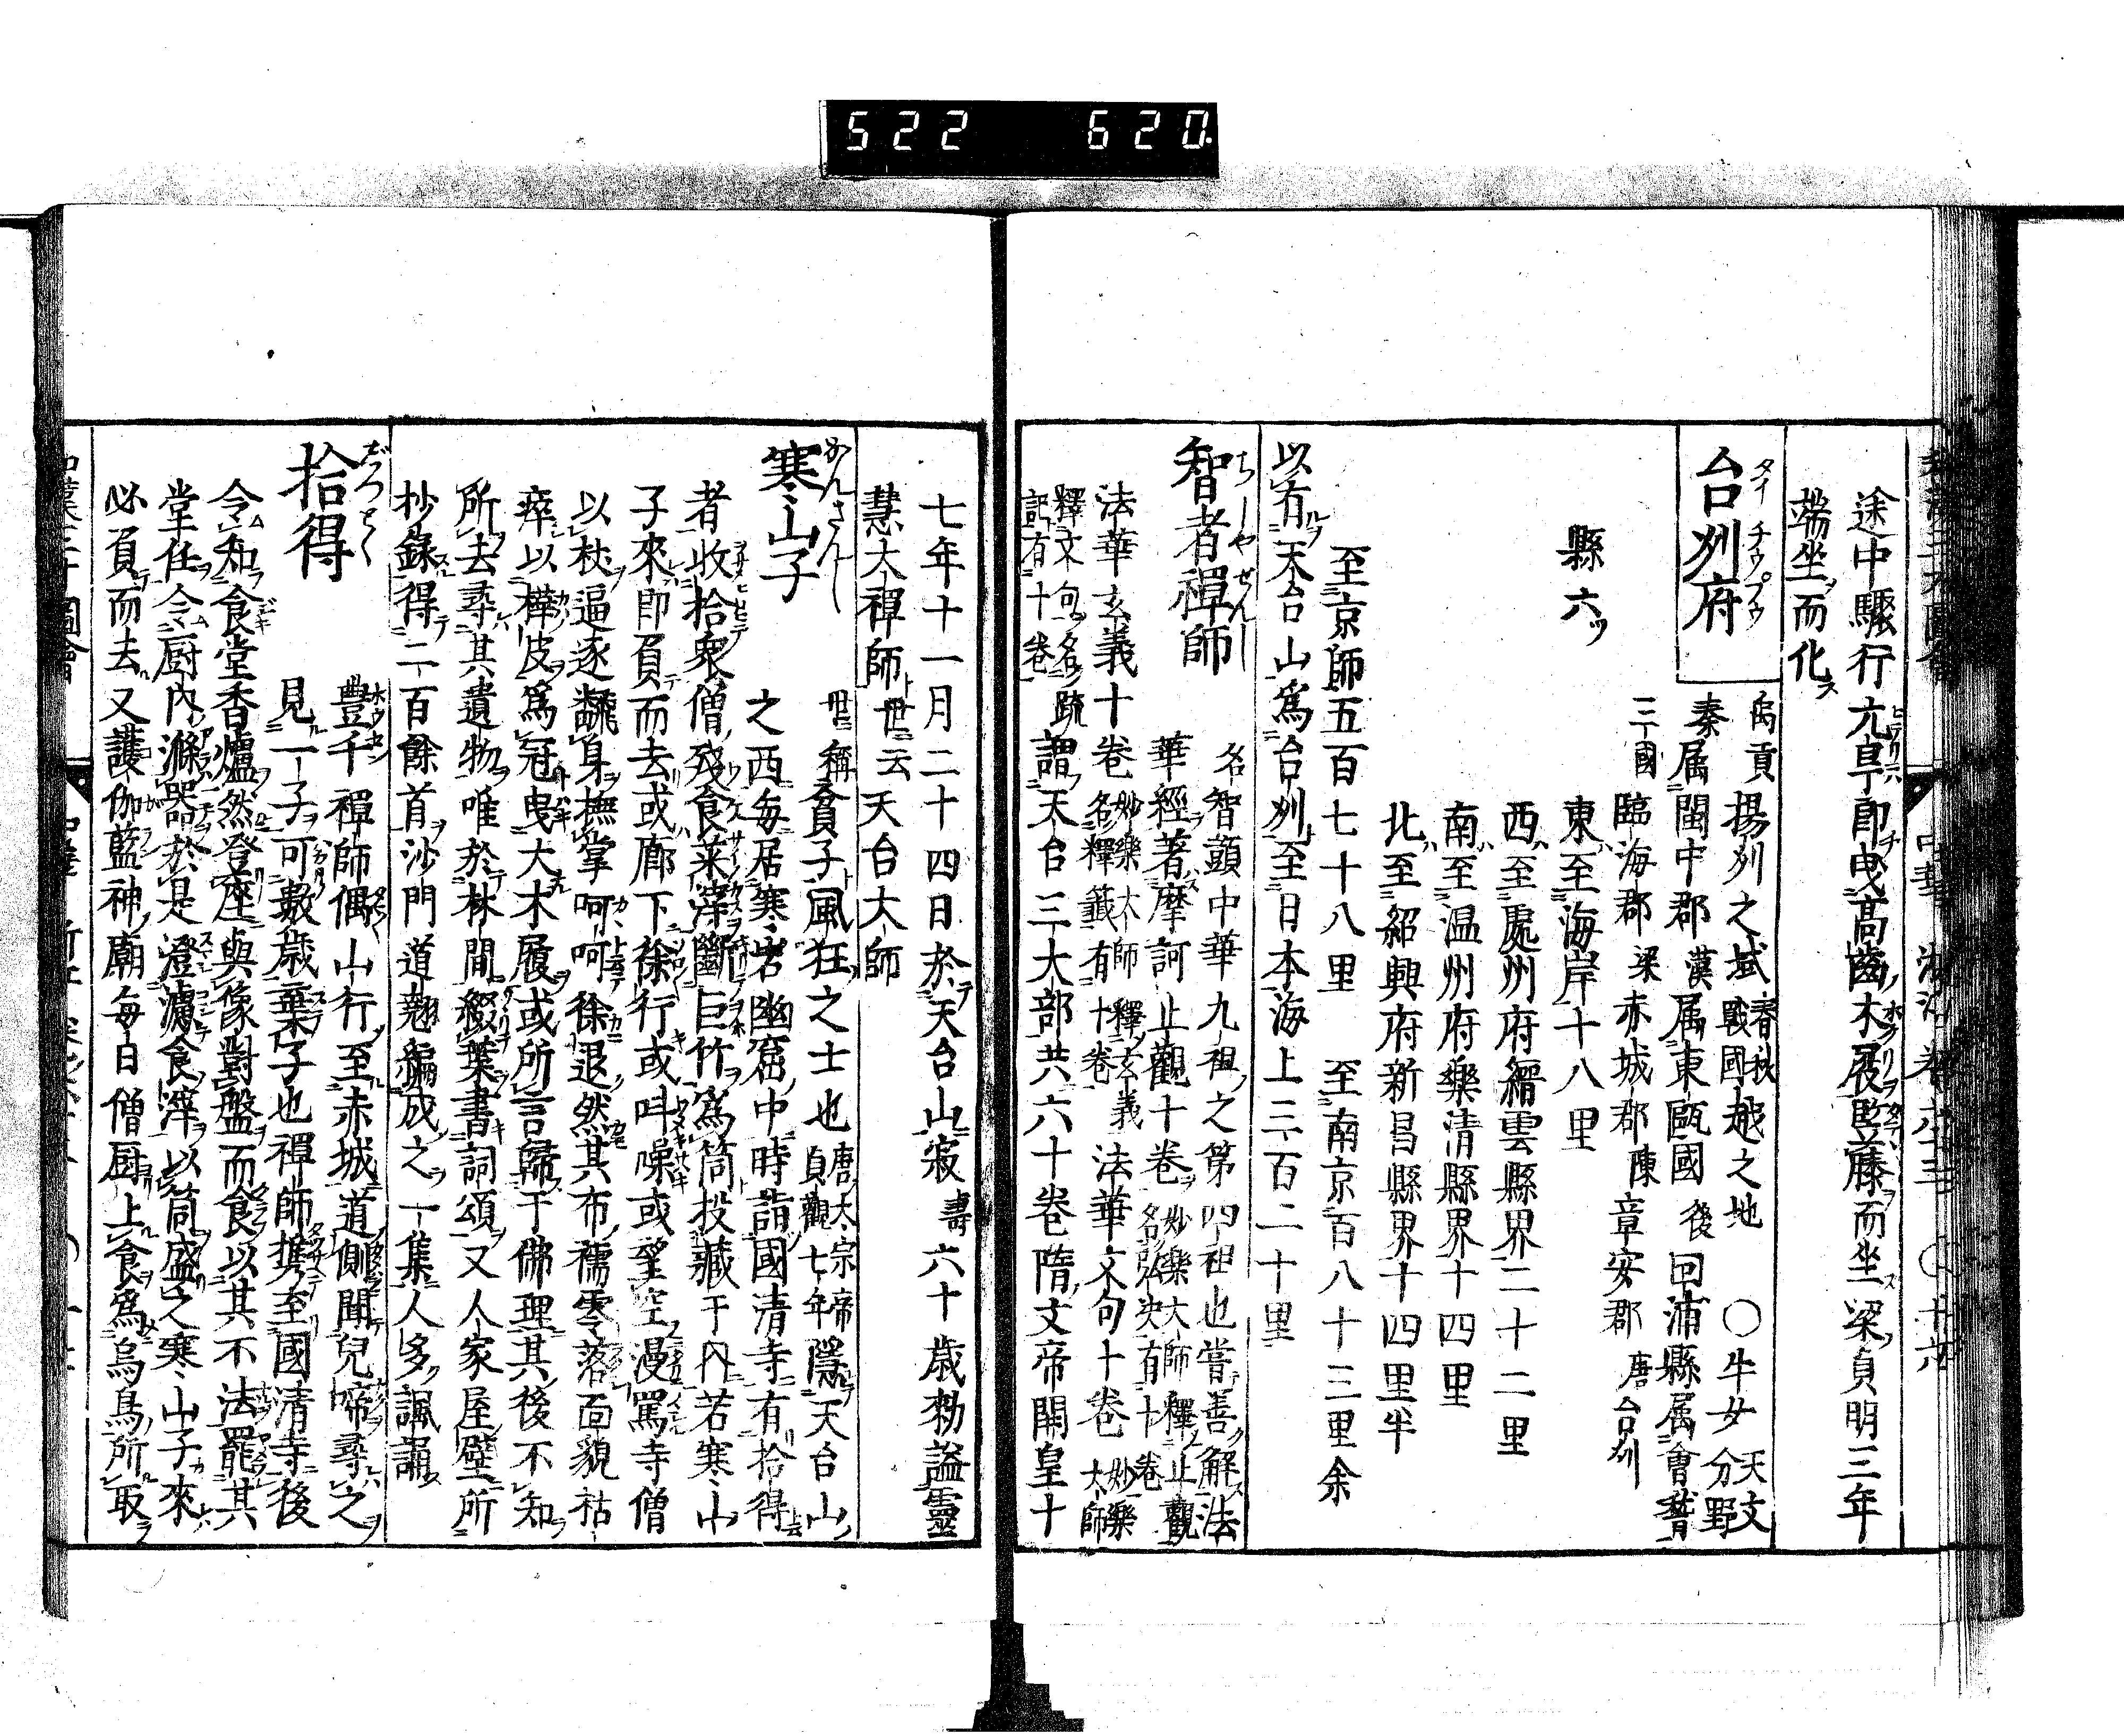 522 620
途中驟行亢旱即曳高齒木屐竪藤而坐梁貞明三年
端坐而化
台州府
禹貢揚州之域春秋戰國越之地 〇牛女天文分野
秦属閩中郡漢属東甌國後回浦縣属會稽
三國臨海郡梁赤城郡陳章安郡唐台州
縣六ツ
東至海岸十八里
西至處州府縉雲縣界二十二里
南至温州府樂清縣界十四里
北至紹興府新昌縣界十四里半
至京師五百七十八里 至南京百八十三里余
以有天台山爲台州至日本海上三百二十里
智者禪師
名智顗中華九祖之第四祖也嘗善解法
華經著摩訶止觀十卷妙樂大師釋止觀名弘决有十卷
法華玄義十卷妙樂大師釋玄義名釋籤有十卷法華文句十卷妙樂大師
釋文句名疏記有十卷謂天台三大部共六十卷隋文帝開皇十
七年十一月二十四日於天台山寂壽六十歳勅謚靈
慧大禪師世云天台大師
寒山子
世稱貧子風狂之士也唐太宗帝貞觀七年隱天台山
之西毎居寒岩幽窟中時詣國清寺有拾得
者收拾衆僧殘食菜滓斷巨竹爲筒投藏于内若寒山
子來即負而去或廊下徐行或叫噪或望空漫罵寺僧
以杖逼逐飜身撫掌呵呵徐退然其布襦零落面貌枯
瘁以樺皮爲冠曳大木履或所言歸于佛理其後不知
所去尋其遺物唯於林間綴葉書詞頌又人家屋壁所
抄錄得二百餘首沙門道翹編成之一集人多諷誦
拾得
豊干禪師偶山行至赤城道側聞兒啼尋之
見一子可數歳棄子也禪師携至國清寺後
令知食堂香爐然登座與像對盤而食以其不法罷其
堂任令厨内滌器於是澄濾食滓以筒盛之寒山子來
必負而去又護伽藍神廟毎日僧厨上食爲烏鳥所取